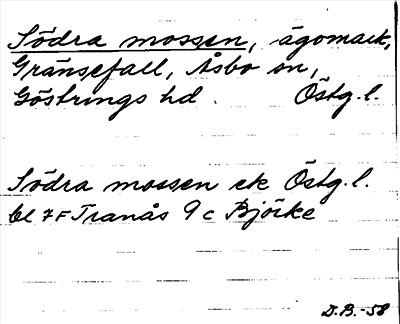 Södra mossen, ägomark,
Gränsefall, Åsbo sn,
Göstrings hd. Östg. l.
Södra mossen ek Östg. l.
bl 7F Tranås 9 c Björke
D.B.-58